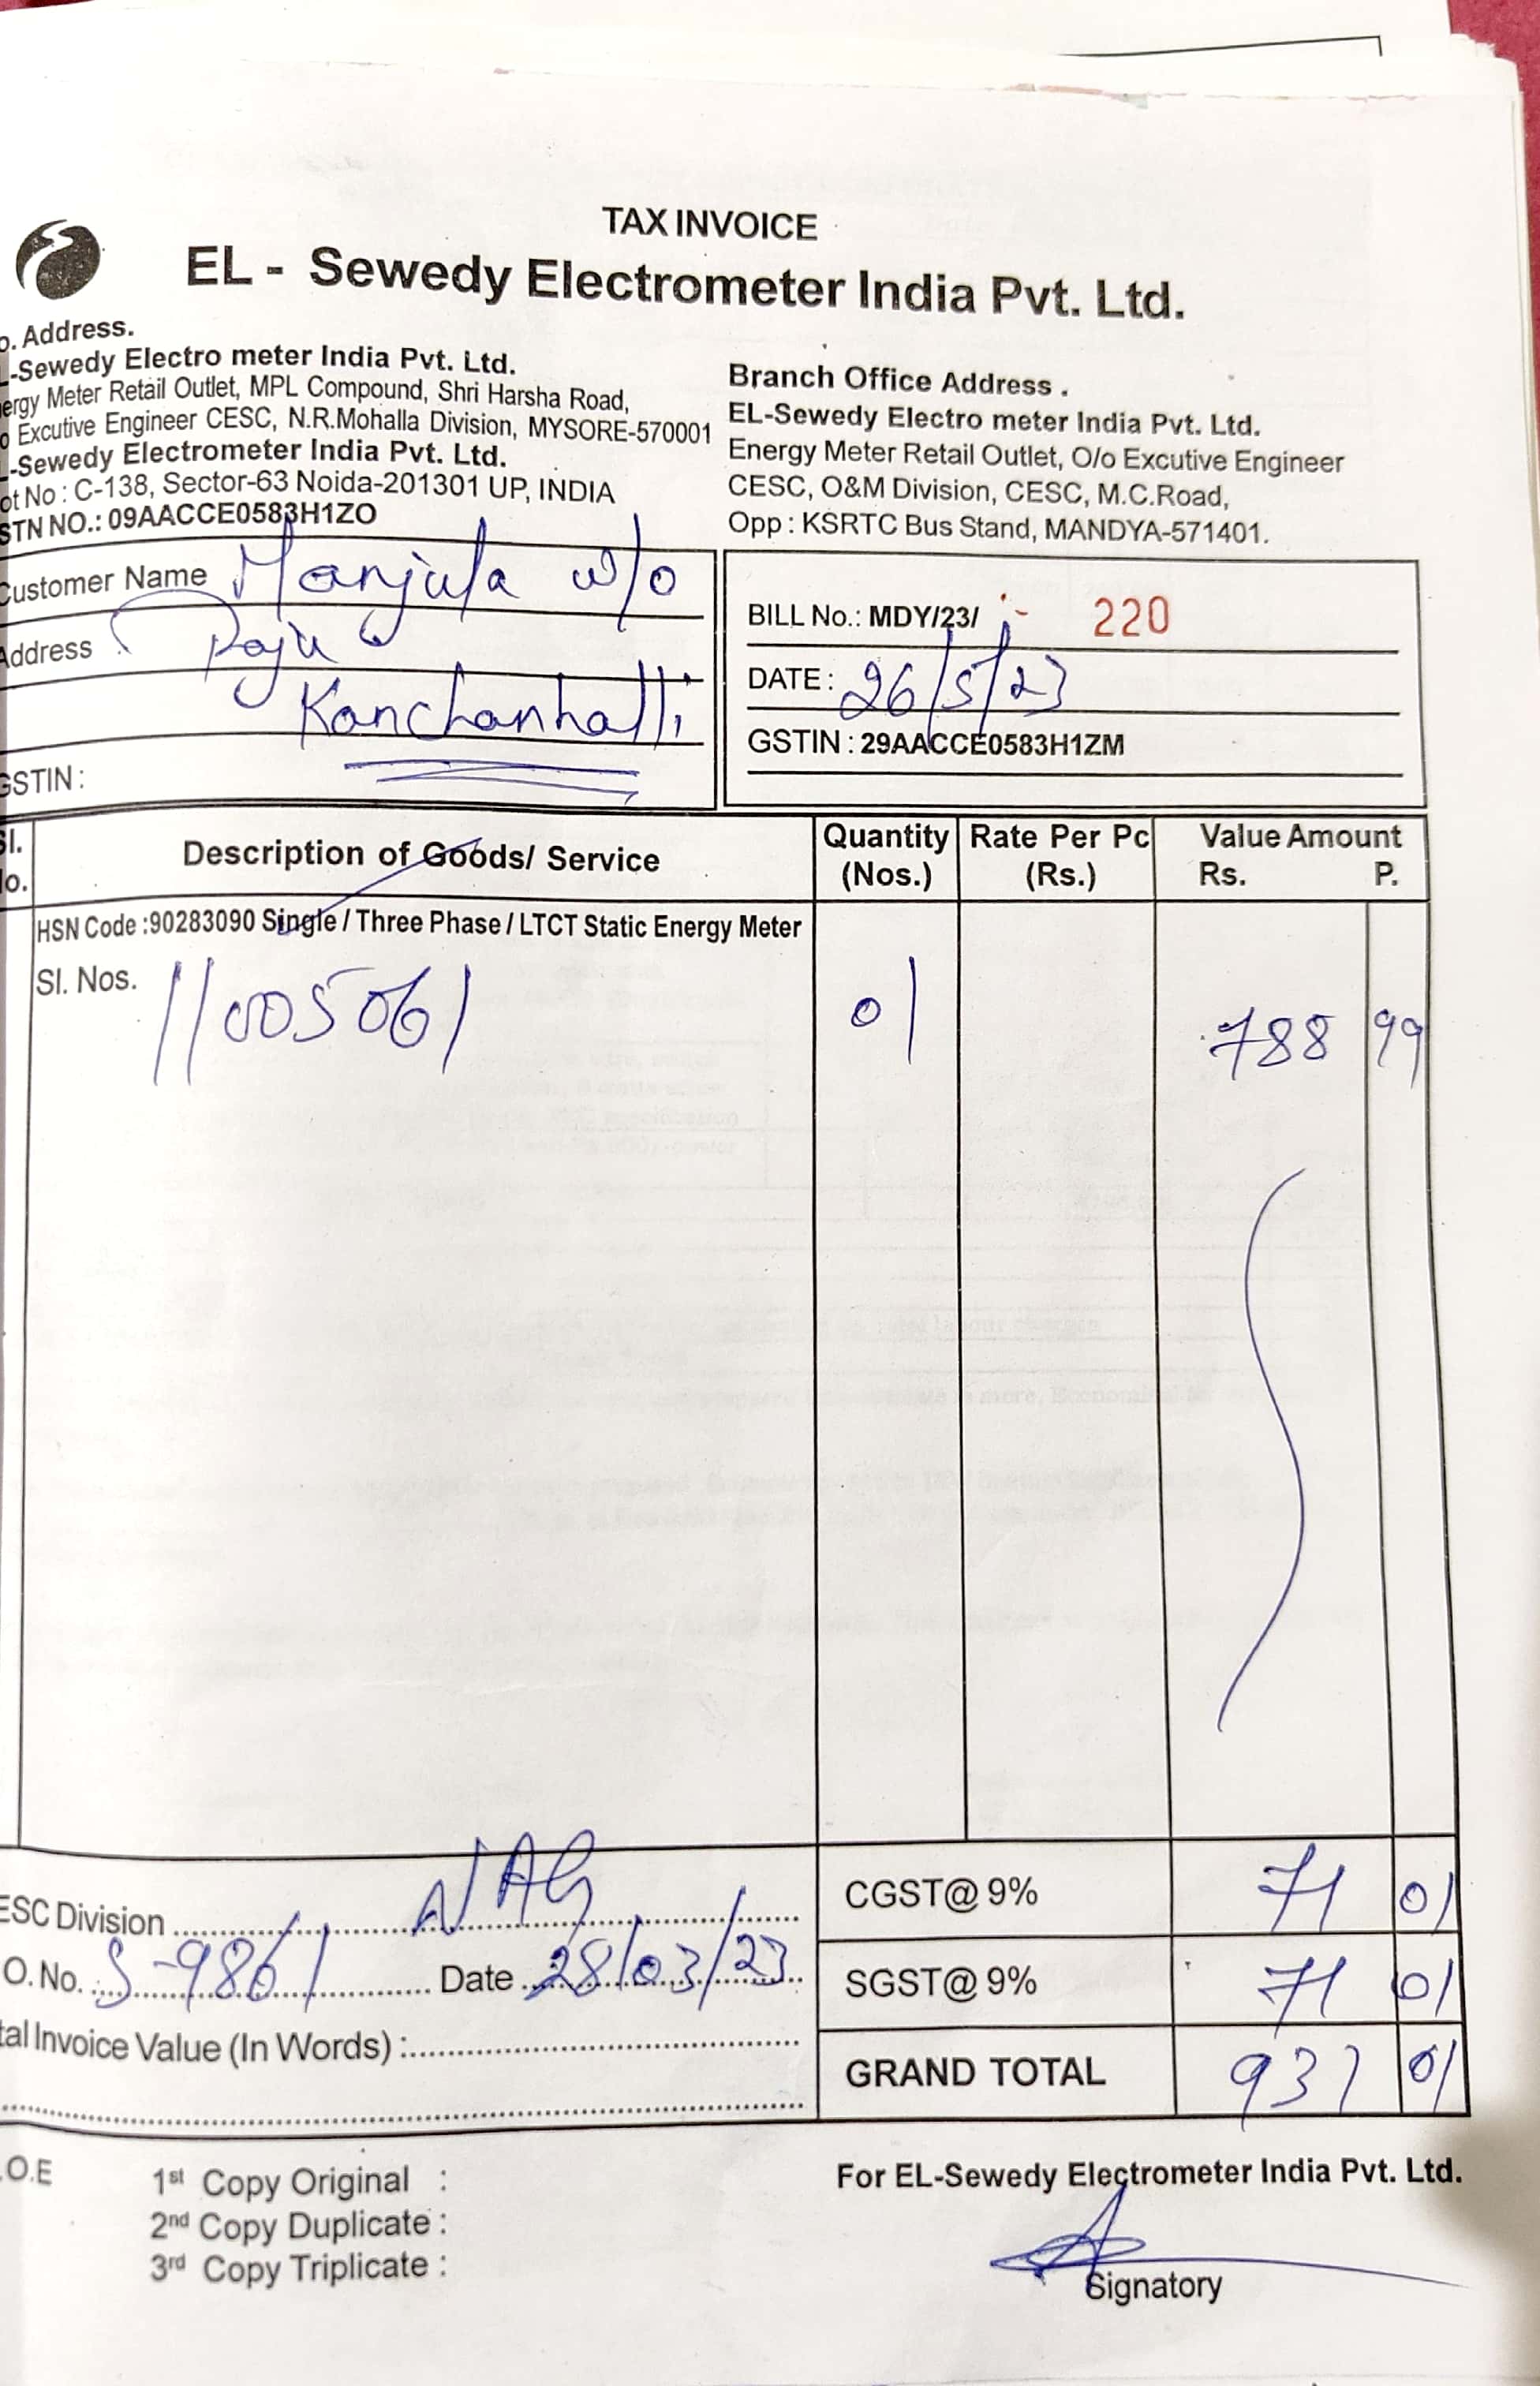 TAX INVOICE
EL - Sewedy Electrometer India Pvt. Ltd.
o. Address.
L-Sewedy Electro meter India Pvt. Ltd.
ergy Meter Retail Outlet, MPL Compound, Shri Harsha Road,
o Excutive Engineer CESC, N.R.Mohalla Division, MYSORE-570001
L-Sewedy Electrometer India Pvt. Ltd.
ot No : C-138, Sector-63 Noida-201301 UP, INDIA
STN NO.: 09AACCE0583H1ZO
Branch Office Address .
EL-Sewedy Electro meter India Pvt. Ltd.
Energy Meter Retail Outlet, O/o Excutive Engineer
CESC, O&M Division, CESC, M.C.Road,
Opp : KSRTC Bus Stand, MANDYA-571401.
Customer Name Manjula w/o
Address Raju
Kanchanhalli
GSTIN :
BILL No.: MDY/23/ :- 220
DATE : 26/5/23
GSTIN : 29AACCE0583H1ZM
Sl. No. Description of Goods/ Service Quantity (Nos.) Rate Per Pc (Rs.) Value Amount Rs. P.
HSN Code :90283090 Single / Three Phase / LTCT Static Energy Meter
Sl. Nos. 11005061 01 788 99
ESC Division NAG
CGST@ 9% 71 01
O. No. S-9861 Date 28/03/23
SGST@ 9% 71 01
tal Invoice Value (In Words) :
GRAND TOTAL 931 01
.O.E
1st Copy Original :
2nd Copy Duplicate :
3rd Copy Triplicate :
For EL-Sewedy Electrometer India Pvt. Ltd.
Signatory